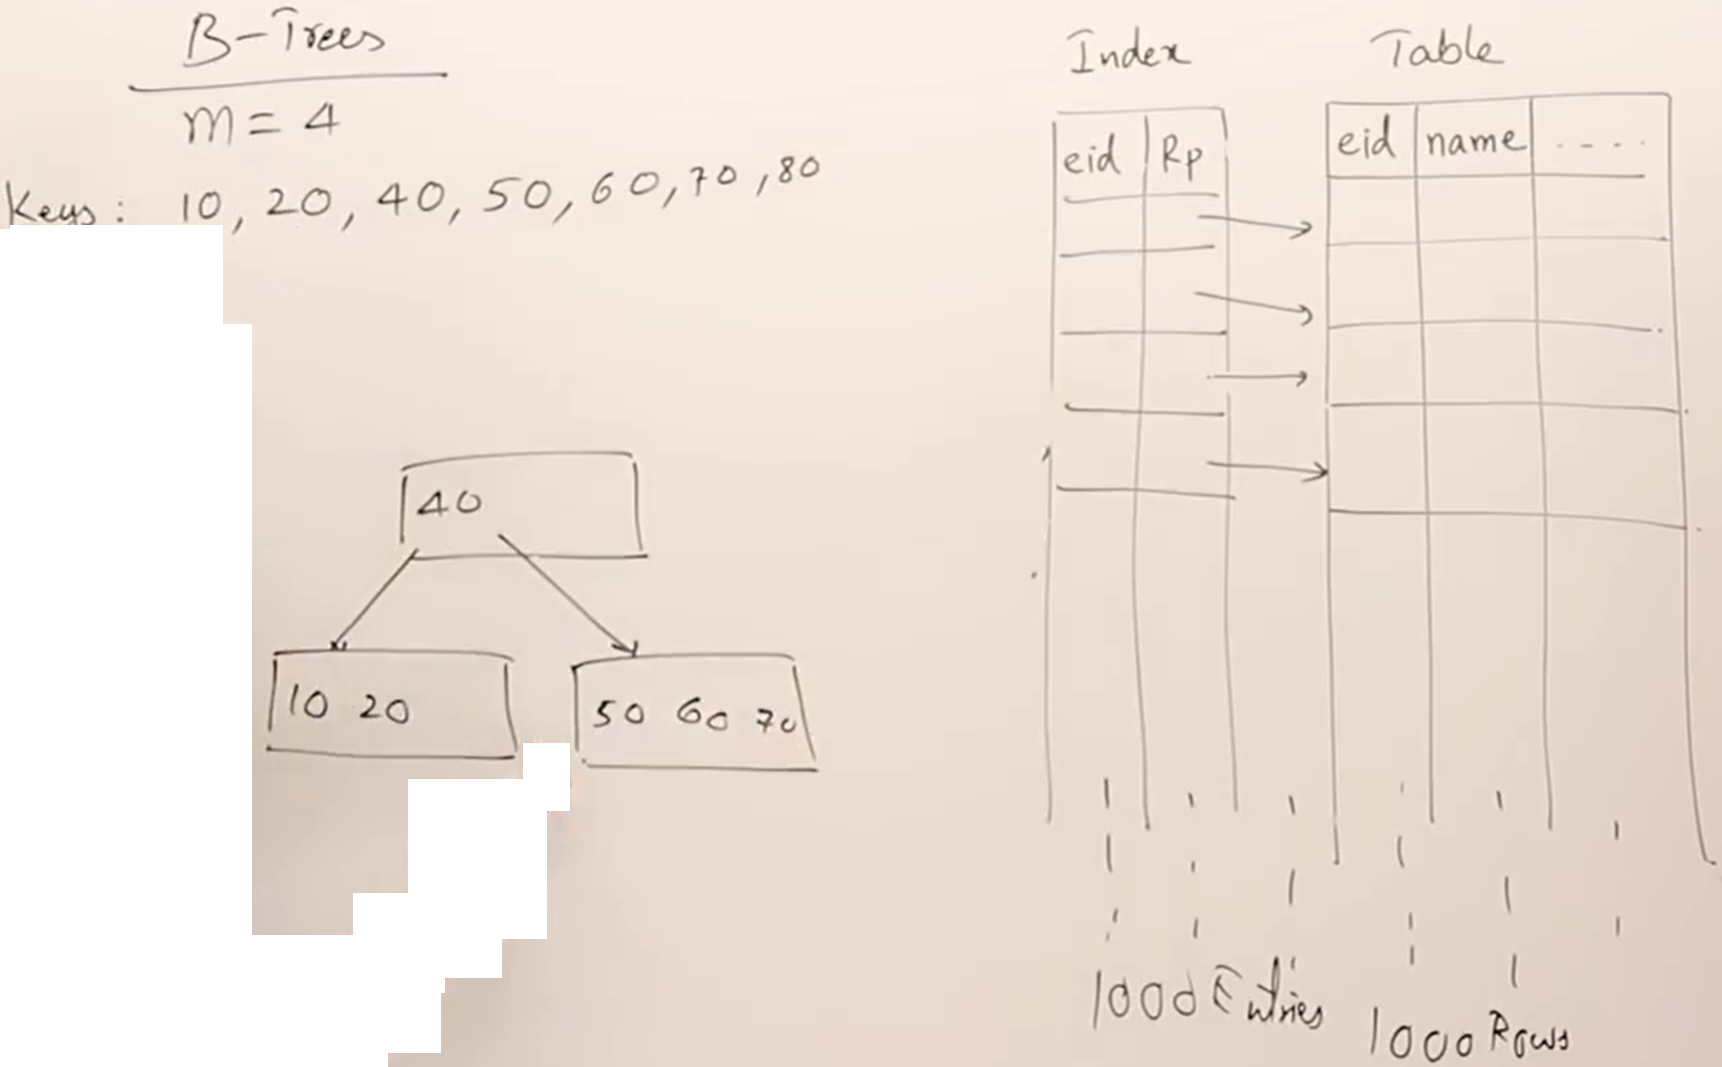 B-Trees
m = 4
Keys: 10, 20, 40, 50, 60, 70, 80
40
10 20
50 60 70
Index
eid Rp
1000 Entries
Table
eid name ....
1000 Rows